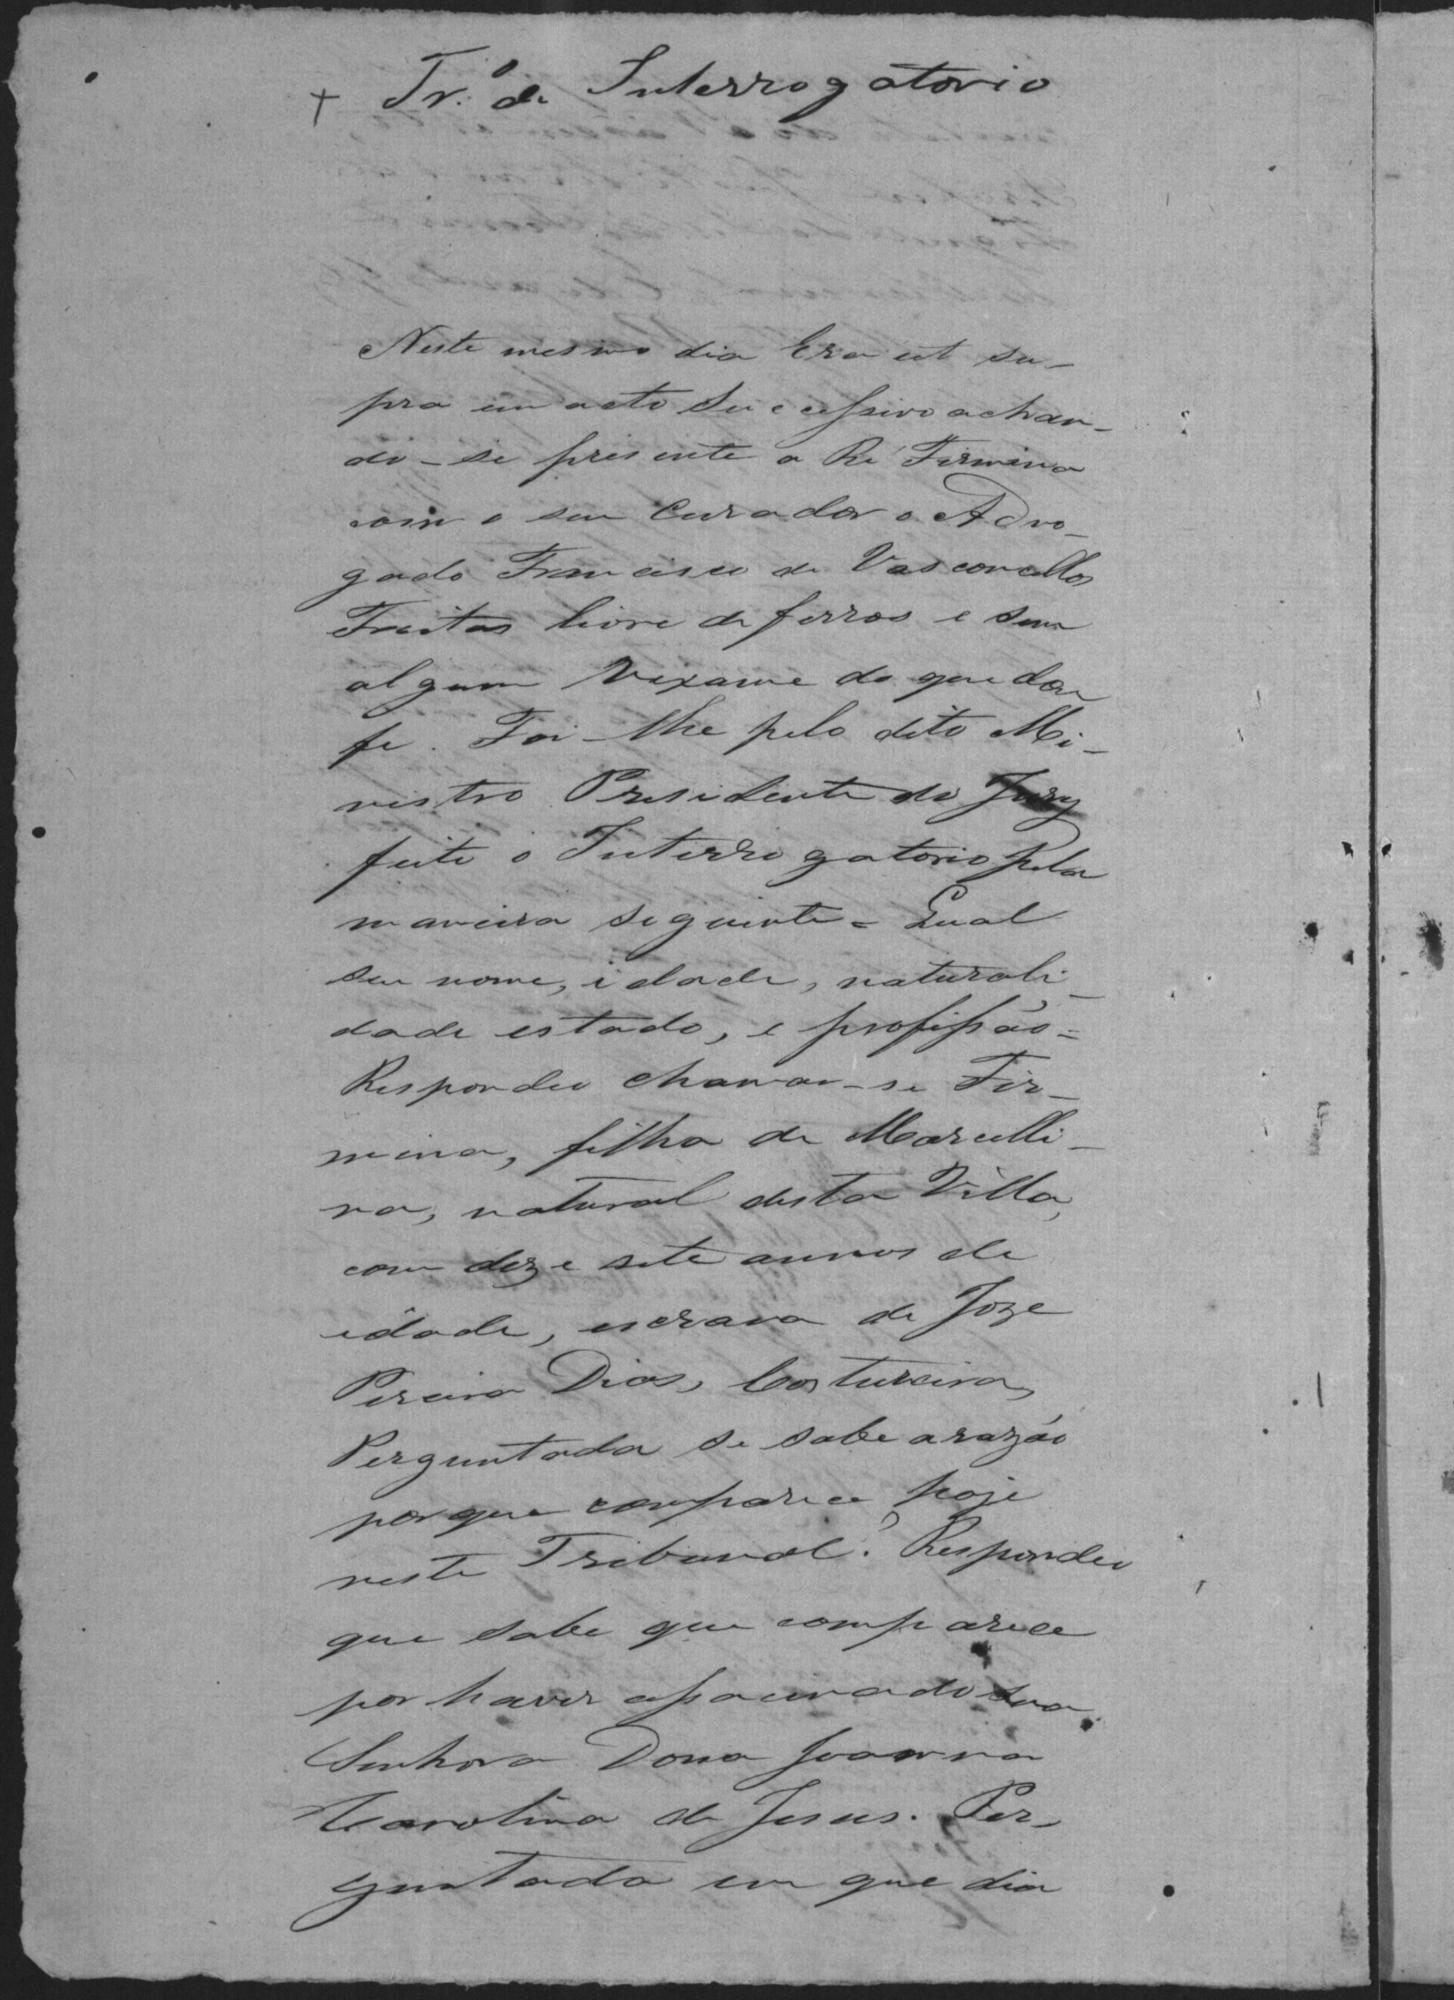 + Tr.º de Interrogatorio
Neste mesmo dia Era ut su-
pra em acto successivo achan-
do-se presente a Ré Firmina
com o seu Curador o Advo-
gado Francisco de Vasconcellos
Freitas livre de ferros e sem
algum vexame do que dou
fe. Foi-lhe pelo dito Mi-
nistro Presidente do Jury
feito o Interrogatorio pela
maneira seguinte = Qual
seu nome, idade, naturali-
dade estado, e profissão =
Respondeo chamar-se Fir-
mina, filha de Marcelli-
na, natural desta Villa,
com deze sete annos de
idade, escrava de Joze
Pereira Dias, Costureira,
Perguntada se sabe arazão
porque comparece hoje
neste Tribunal? Respondeo
que sabe que comparece
por haver assacinado sua
Senhora Dona Joanna
Carolina de Jesus. Per-
guntada em que dia